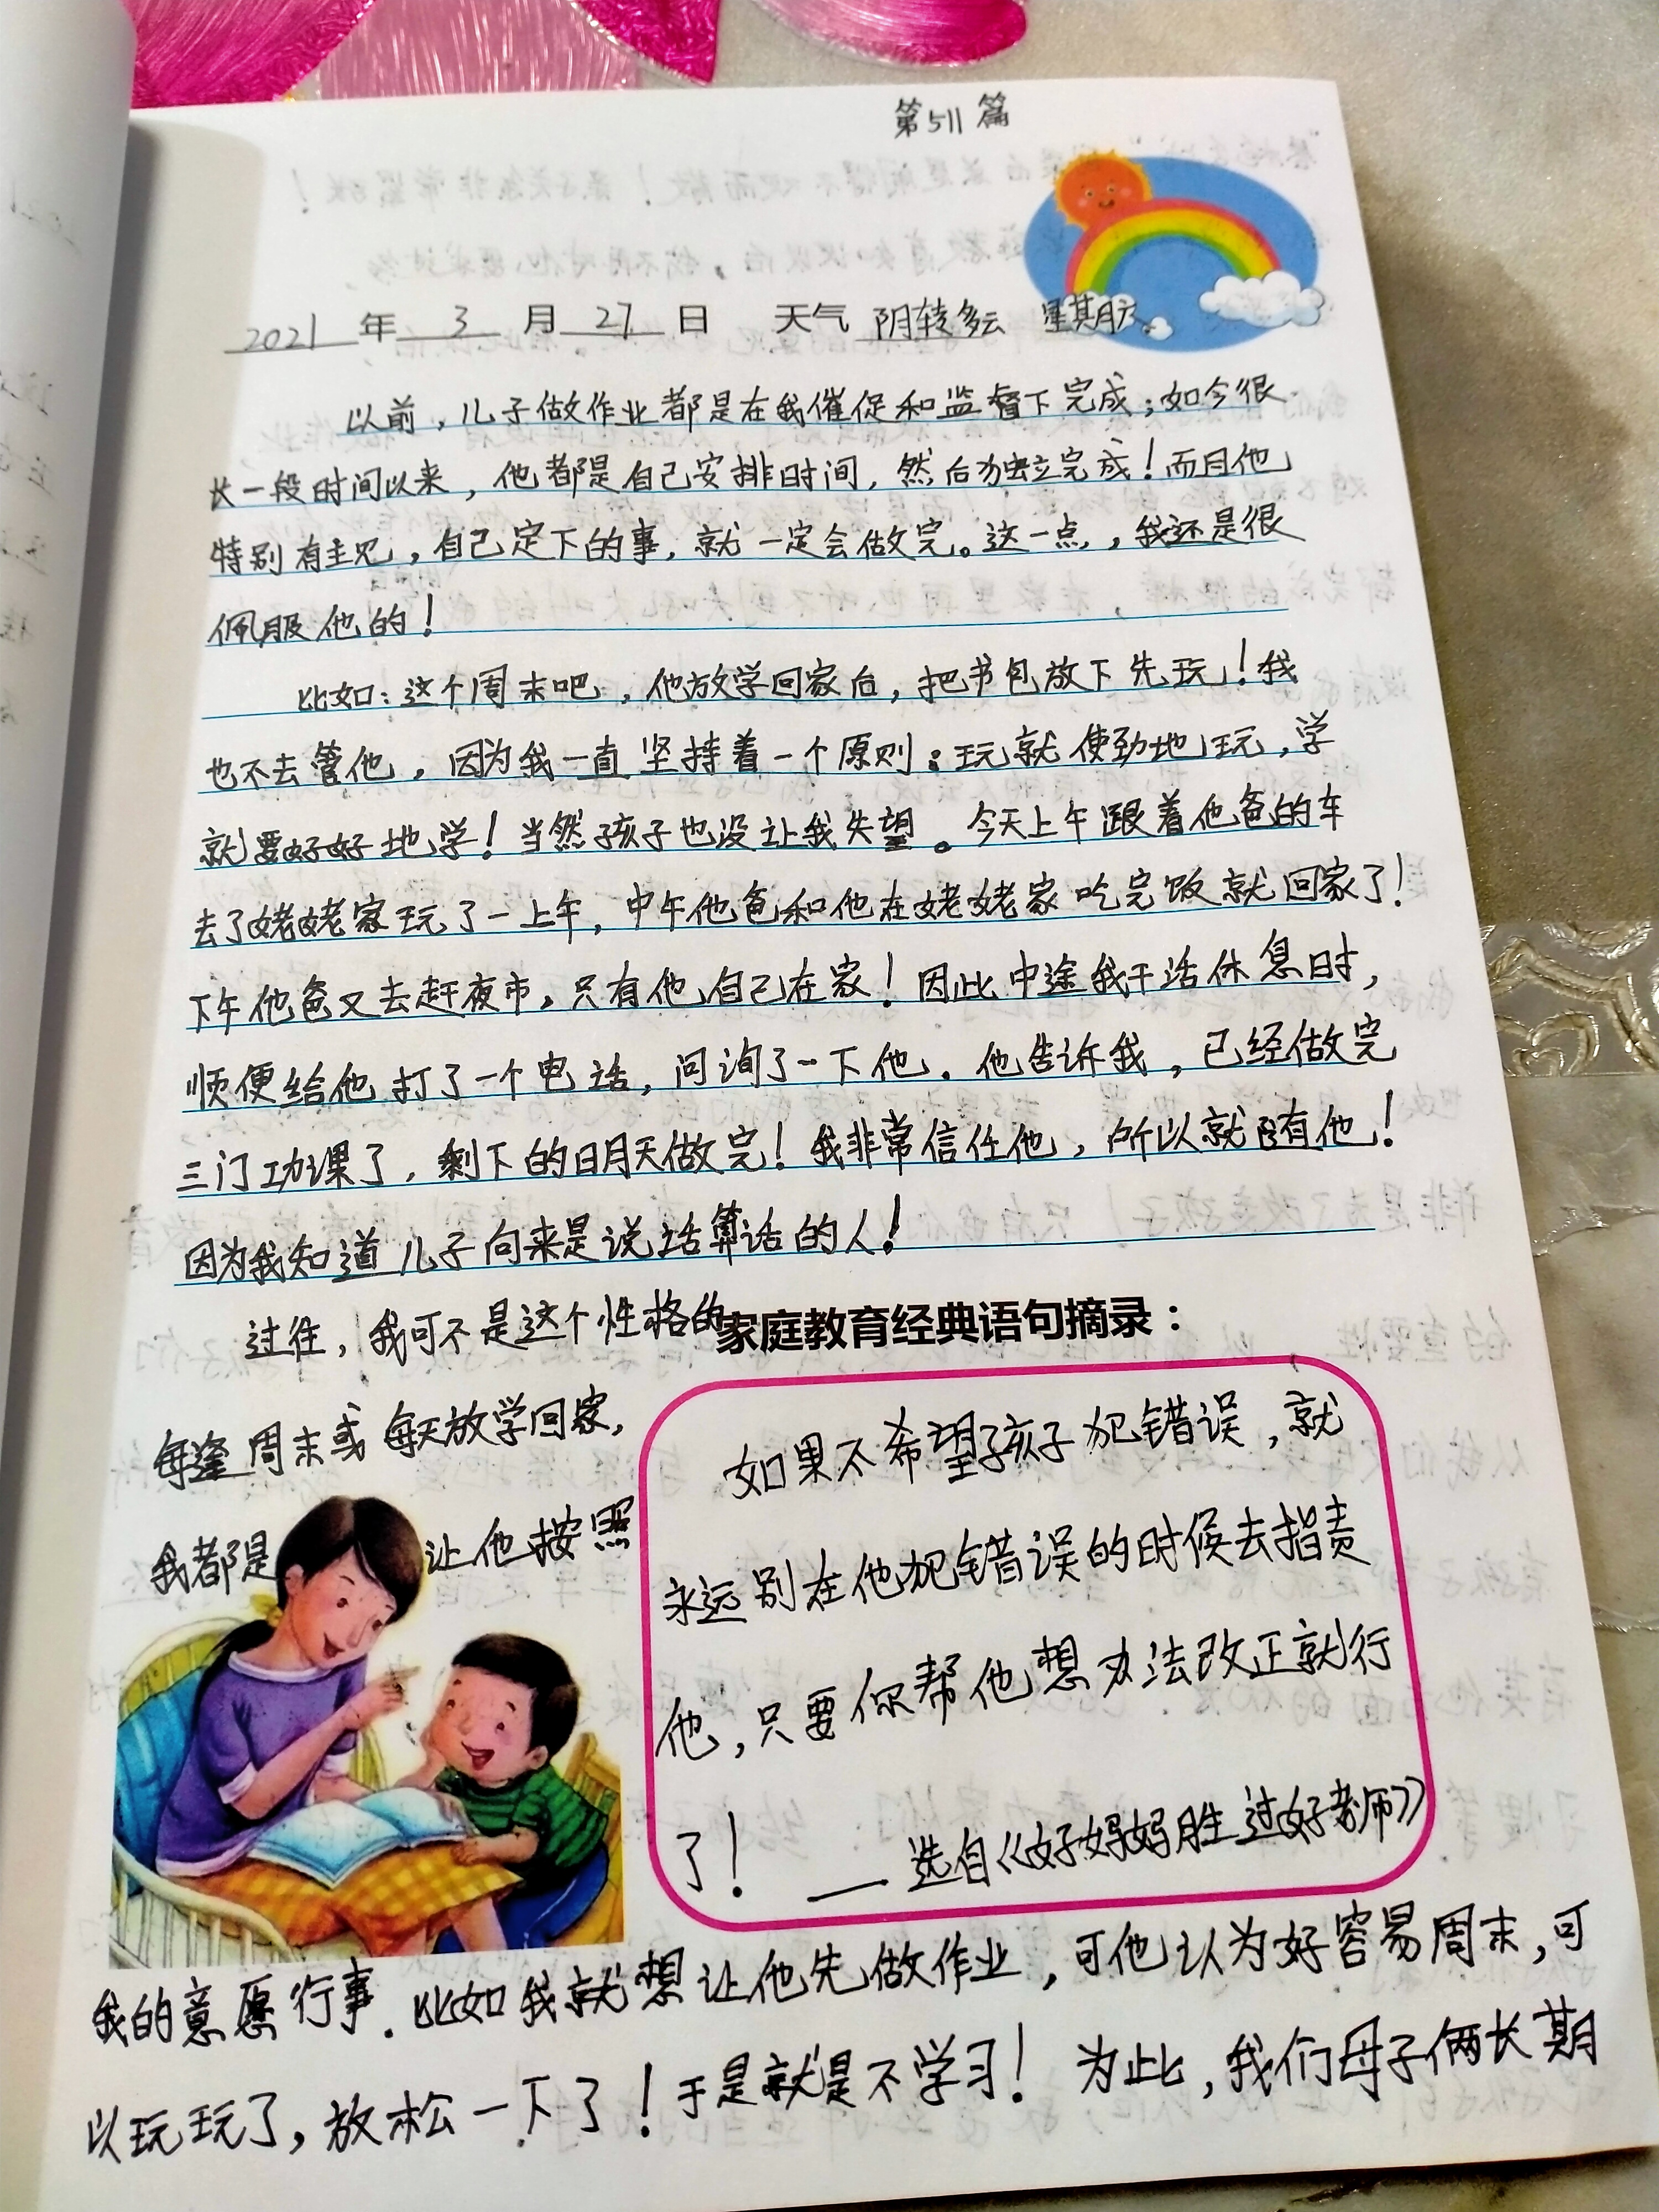 第511篇
2021年3月27日 天气 阴转多云 星期六
以前，儿子做作业都是在我催促和监督下完成；如今很
长一段时间以来，他都是自己安排时间，然后独立完成！而且他
特别有主见，自己定下的事，就一定会做完。这一点，我还是很
佩服他的！
比如：这个周末吧，他放学回家后，把书包放下先玩！我
也不去管他，因为我一直坚持着一个原则：玩就使劲地玩，学
就要好好地学！当然孩子也没让我失望。今天上午跟着他爸的车
去了姥姥家玩了一上午，中午他爸和他在姥姥家吃完饭就回家了！
下午他爸又去赶夜市，只有他自己在家！因此中途我干活休息时，
顺便给他打了一个电话，问询了一下他。他告诉我，已经做完
三门功课了，剩下的明天做完！我非常信任他，所以就随他！
因为我知道儿子向来是说话算话的人！
过往，我可不是这个性格的
每逢周末或每天放学回家，
我都是让他按照
家庭教育经典语句摘录：
如果不希望孩子犯错误，就
永远别在他犯错误的时候去指责
他，只要你帮他想办法改正就行
了！ ——选自《好妈妈胜过好老师》
我的意愿行事。比如我就想让他先做作业，可他认为好容易周末，可
以玩玩了，放松一下了！于是就是不学习！为此，我们母子俩长期